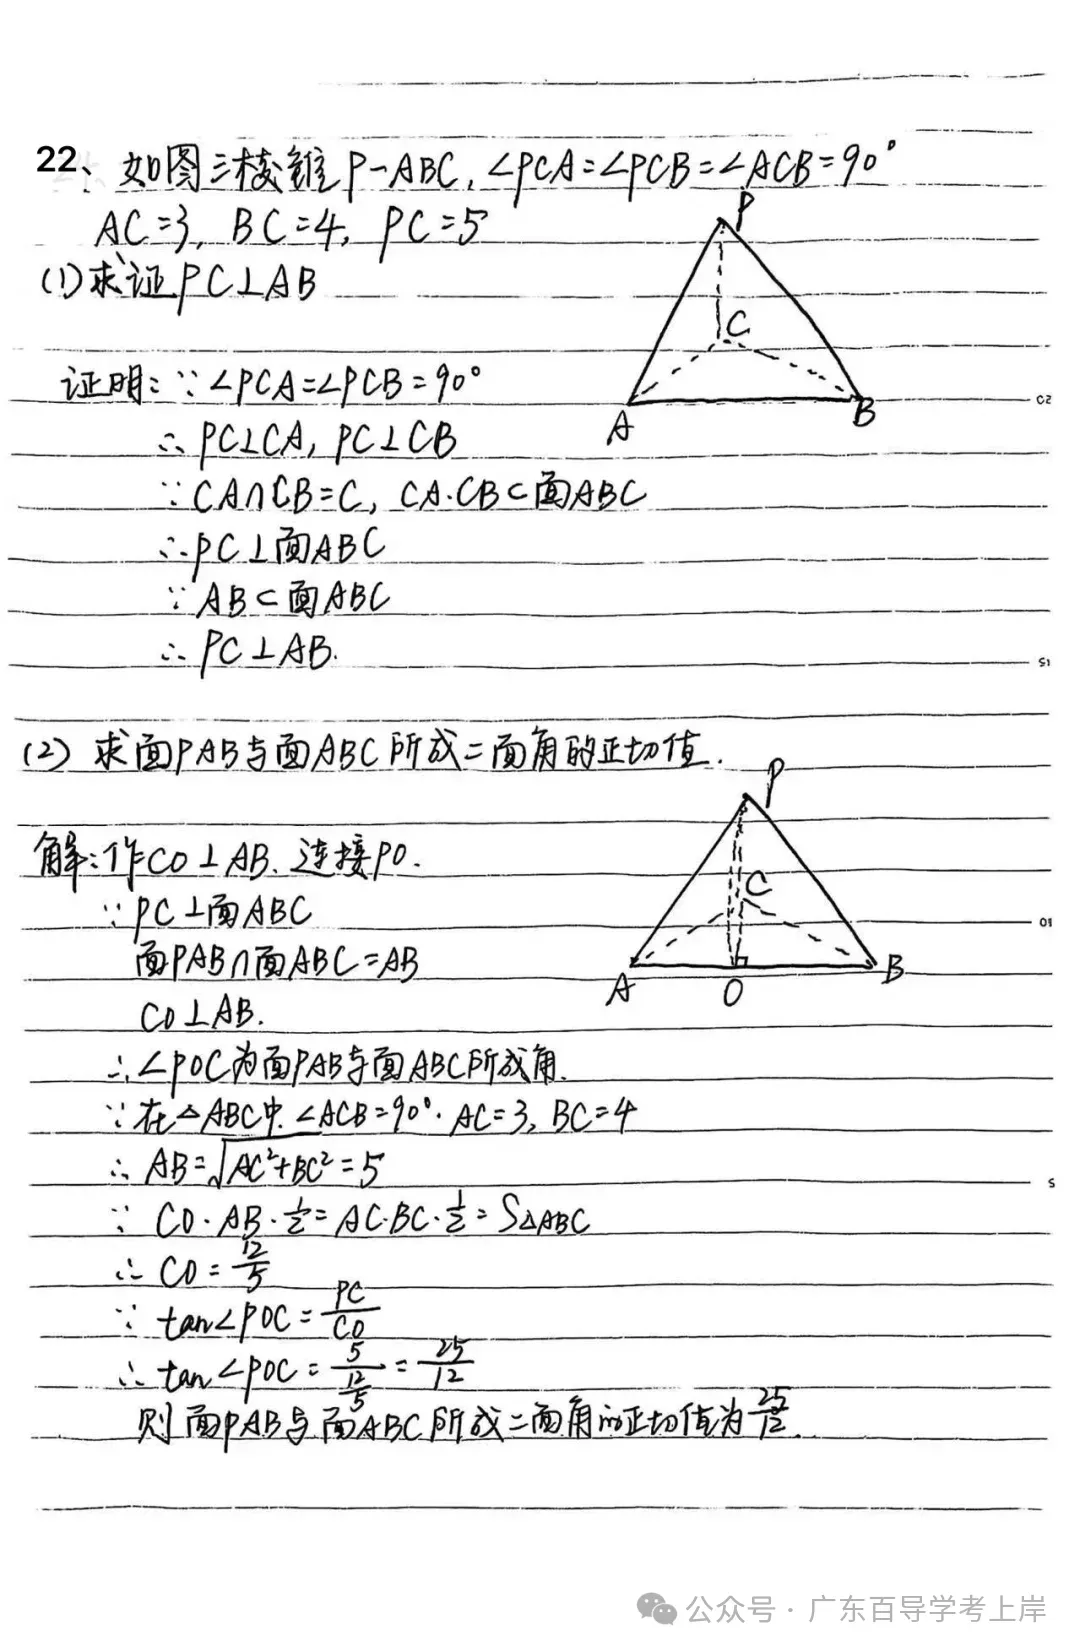 22、如图三棱锥P-ABC,∠PCA=∠PCB=∠ACB=90°
AC=3, BC=4, PC=5
(1)求证PC⊥AB
P
C
A
B
证明:∵∠PCA=∠PCB=90°
∴PC⊥CA, PC⊥CB
∵CA∩CB=C, CA.CB⊂面ABC
∴PC⊥面ABC
∵AB⊂面ABC
∴PC⊥AB.
(2) 求面PAB与面ABC所成二面角的正切值.
P
C
A
O
B
解:作CO⊥AB.连接PO.
∵PC⊥面ABC
面PAB∩面ABC=AB
CO⊥AB.
∴∠POC为面PAB与面ABC所成角.
∵在△ABC中.∠ACB=90°.AC=3, BC=4
∴AB=√AC²+BC²=5
∵CO·AB·1/2=AC·BC·1/2=S△ABC
∴CO=12/5
∵tan∠POC=PC/CO
∴tan∠POC=5/(12/5)=25/12
则面PAB与面ABC所成二面角的正切值为25/12.
20
15
10
5
公众号·广东百导学考上岸